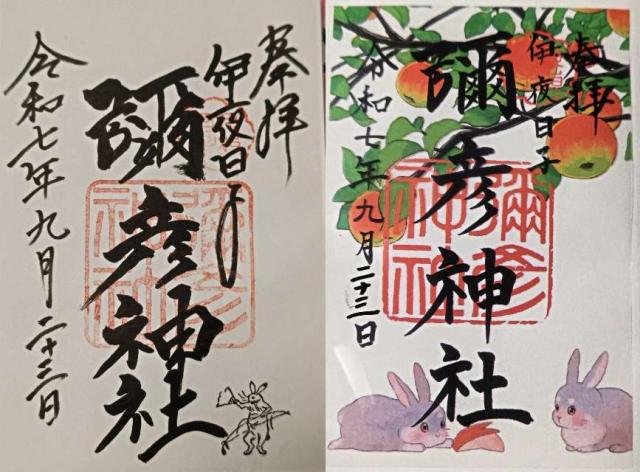 奉拝
伊夜日子
彌彦神社
彌彦神社
令和七年九月二十三日
奉拝
伊夜日子
彌彦神社
彌彦神社
令和七年九月二十三日